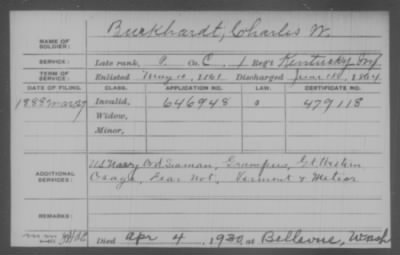 NAME OF SOLDIER: Burkhardt, Charles W.
SERVICE: Late rank, Co. C, 1 Reg't Kentucky Inf
TERM OF SERVICE: Enlisted May 1861 Discharged June 1864
DATE OF FILING. CLASS. APPLICATION NO. LAW. CERTIFICATE NO.
1888 Invalid, 646948 479118
Widow,
Minor,
ADDITIONAL SERVICES: U.S. Navy Ord Seaman, Grampus, Gt. Western
Osage, Fear Not, Vermont & Meteor
REMARKS:
Died Apr 4, 1930, at Bellevue, Wash